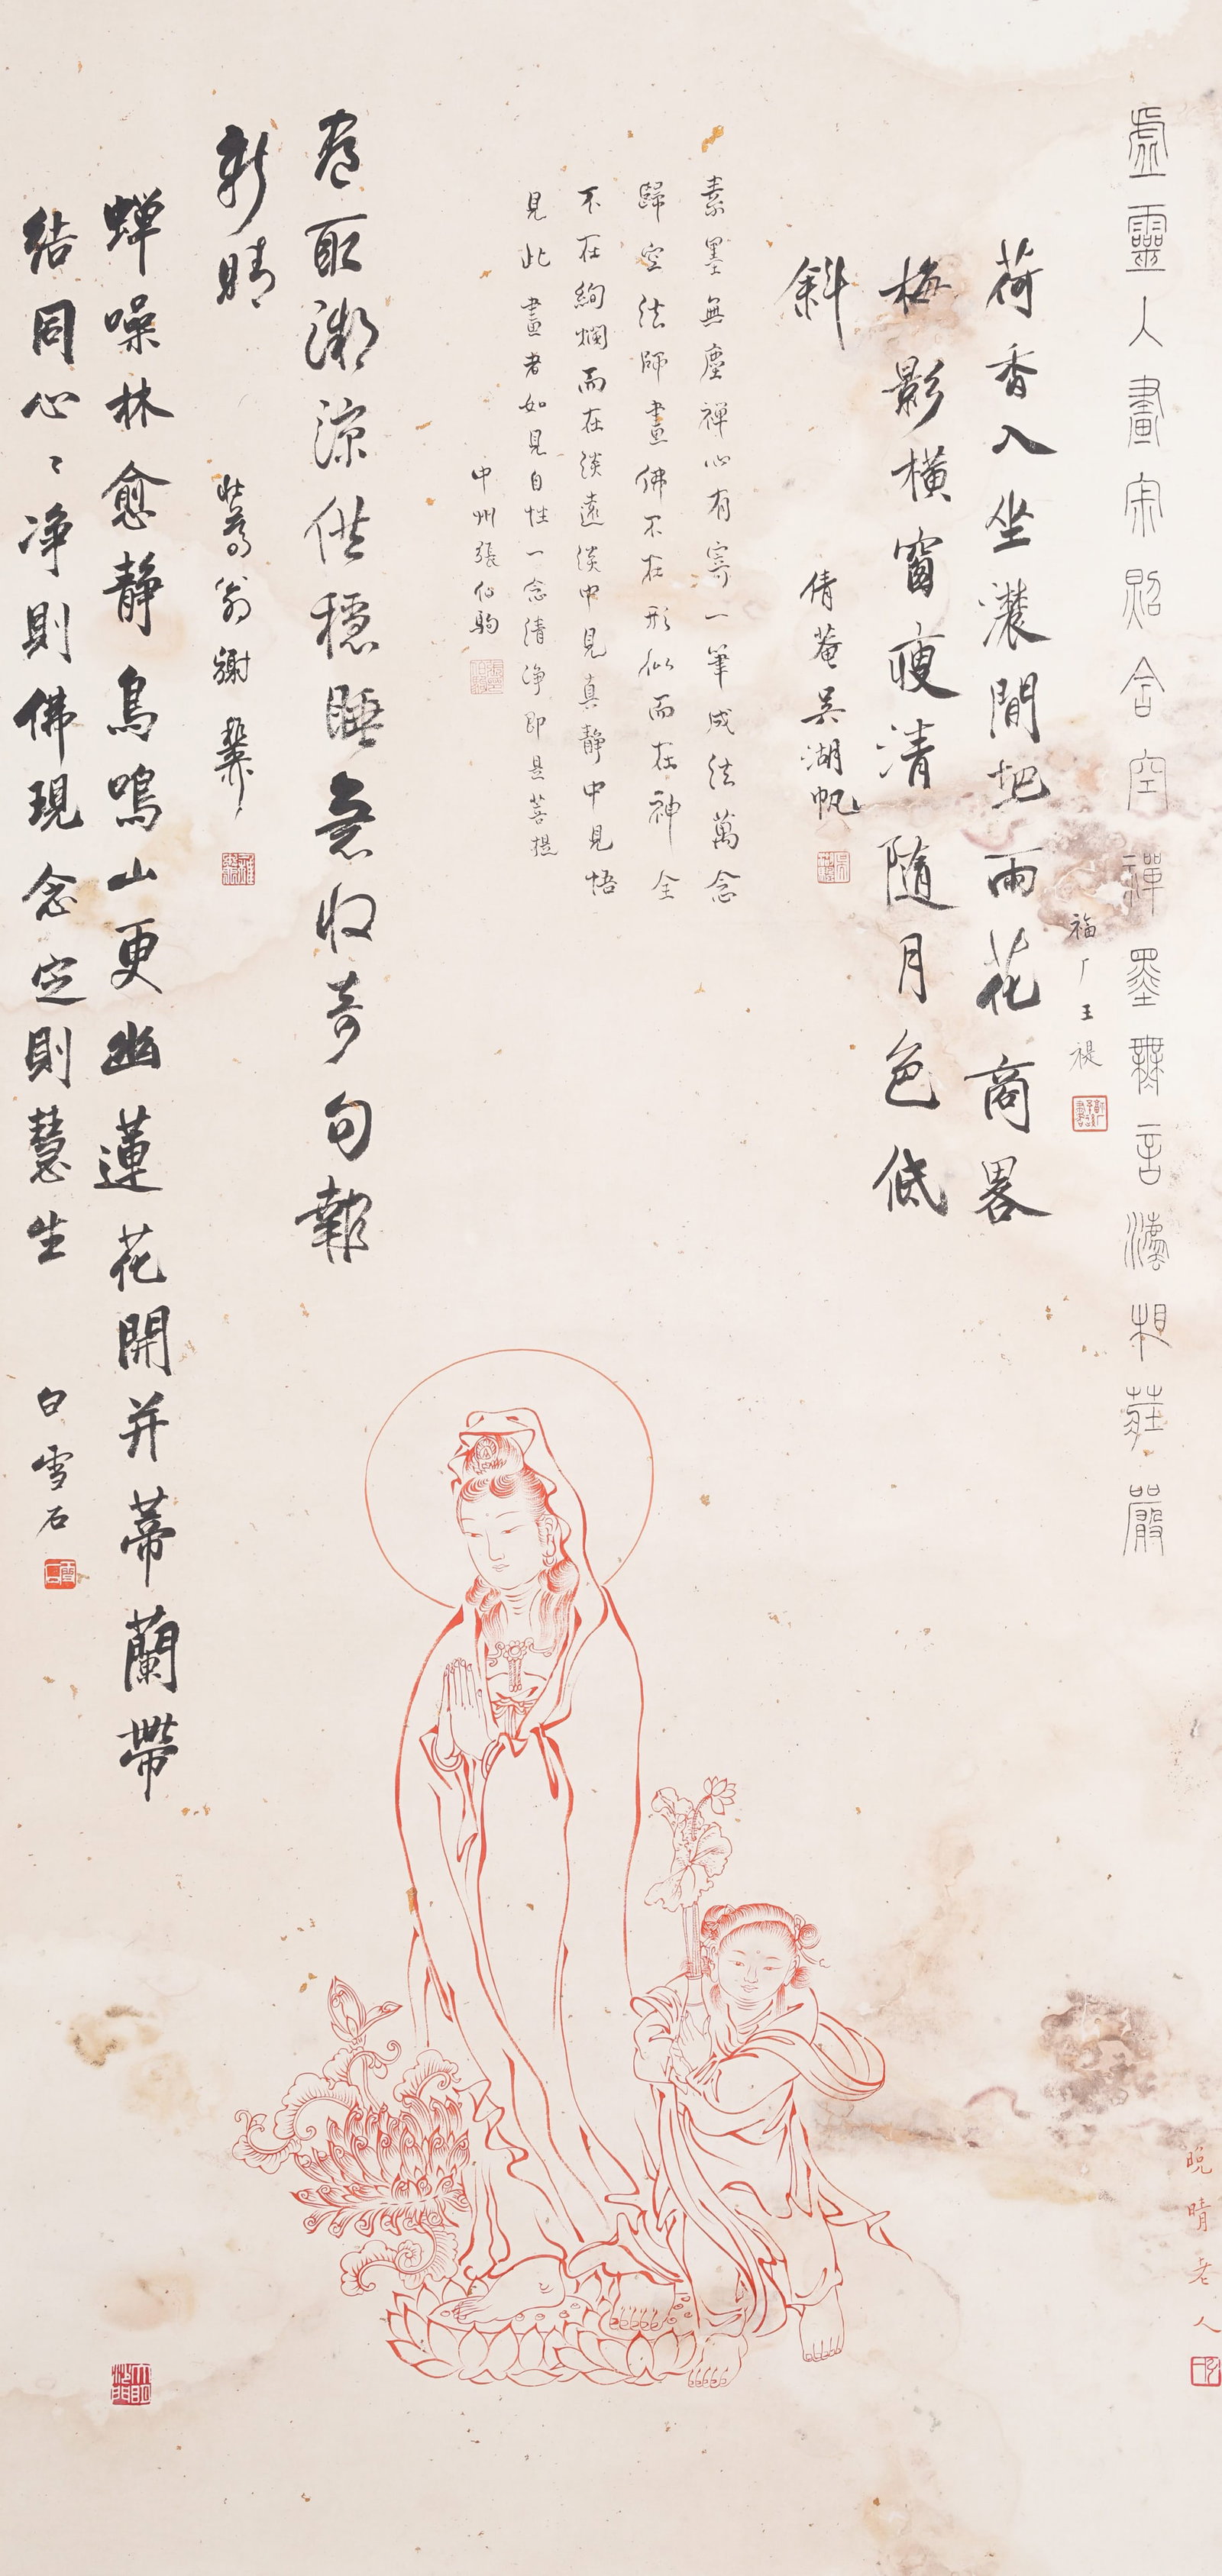 虛靈人畫寂照含空禪墨無言法相莊嚴
福厂王禔
荷香入坐濃閒把雨花商畧
梅影橫窗瘦清隨月色低
斜
倩菴吳湖帆
素墨無塵禪心有寄一筆成法萬念
歸空法師畫佛不在形似而在神全
不在絢爛而在淡遠淡中見真静中見悟
見此畫者如見自性一念清淨即是菩提
中州張伯駒
盡取微涼供穩睡急收奇句報
新晴
壯暮翁謝稚柳
蟬噪林愈静鳥鳴山更幽蓮花開并蒂蘭帶
結同心〻净則佛現念定則慧生
白雪石
晚晴老人